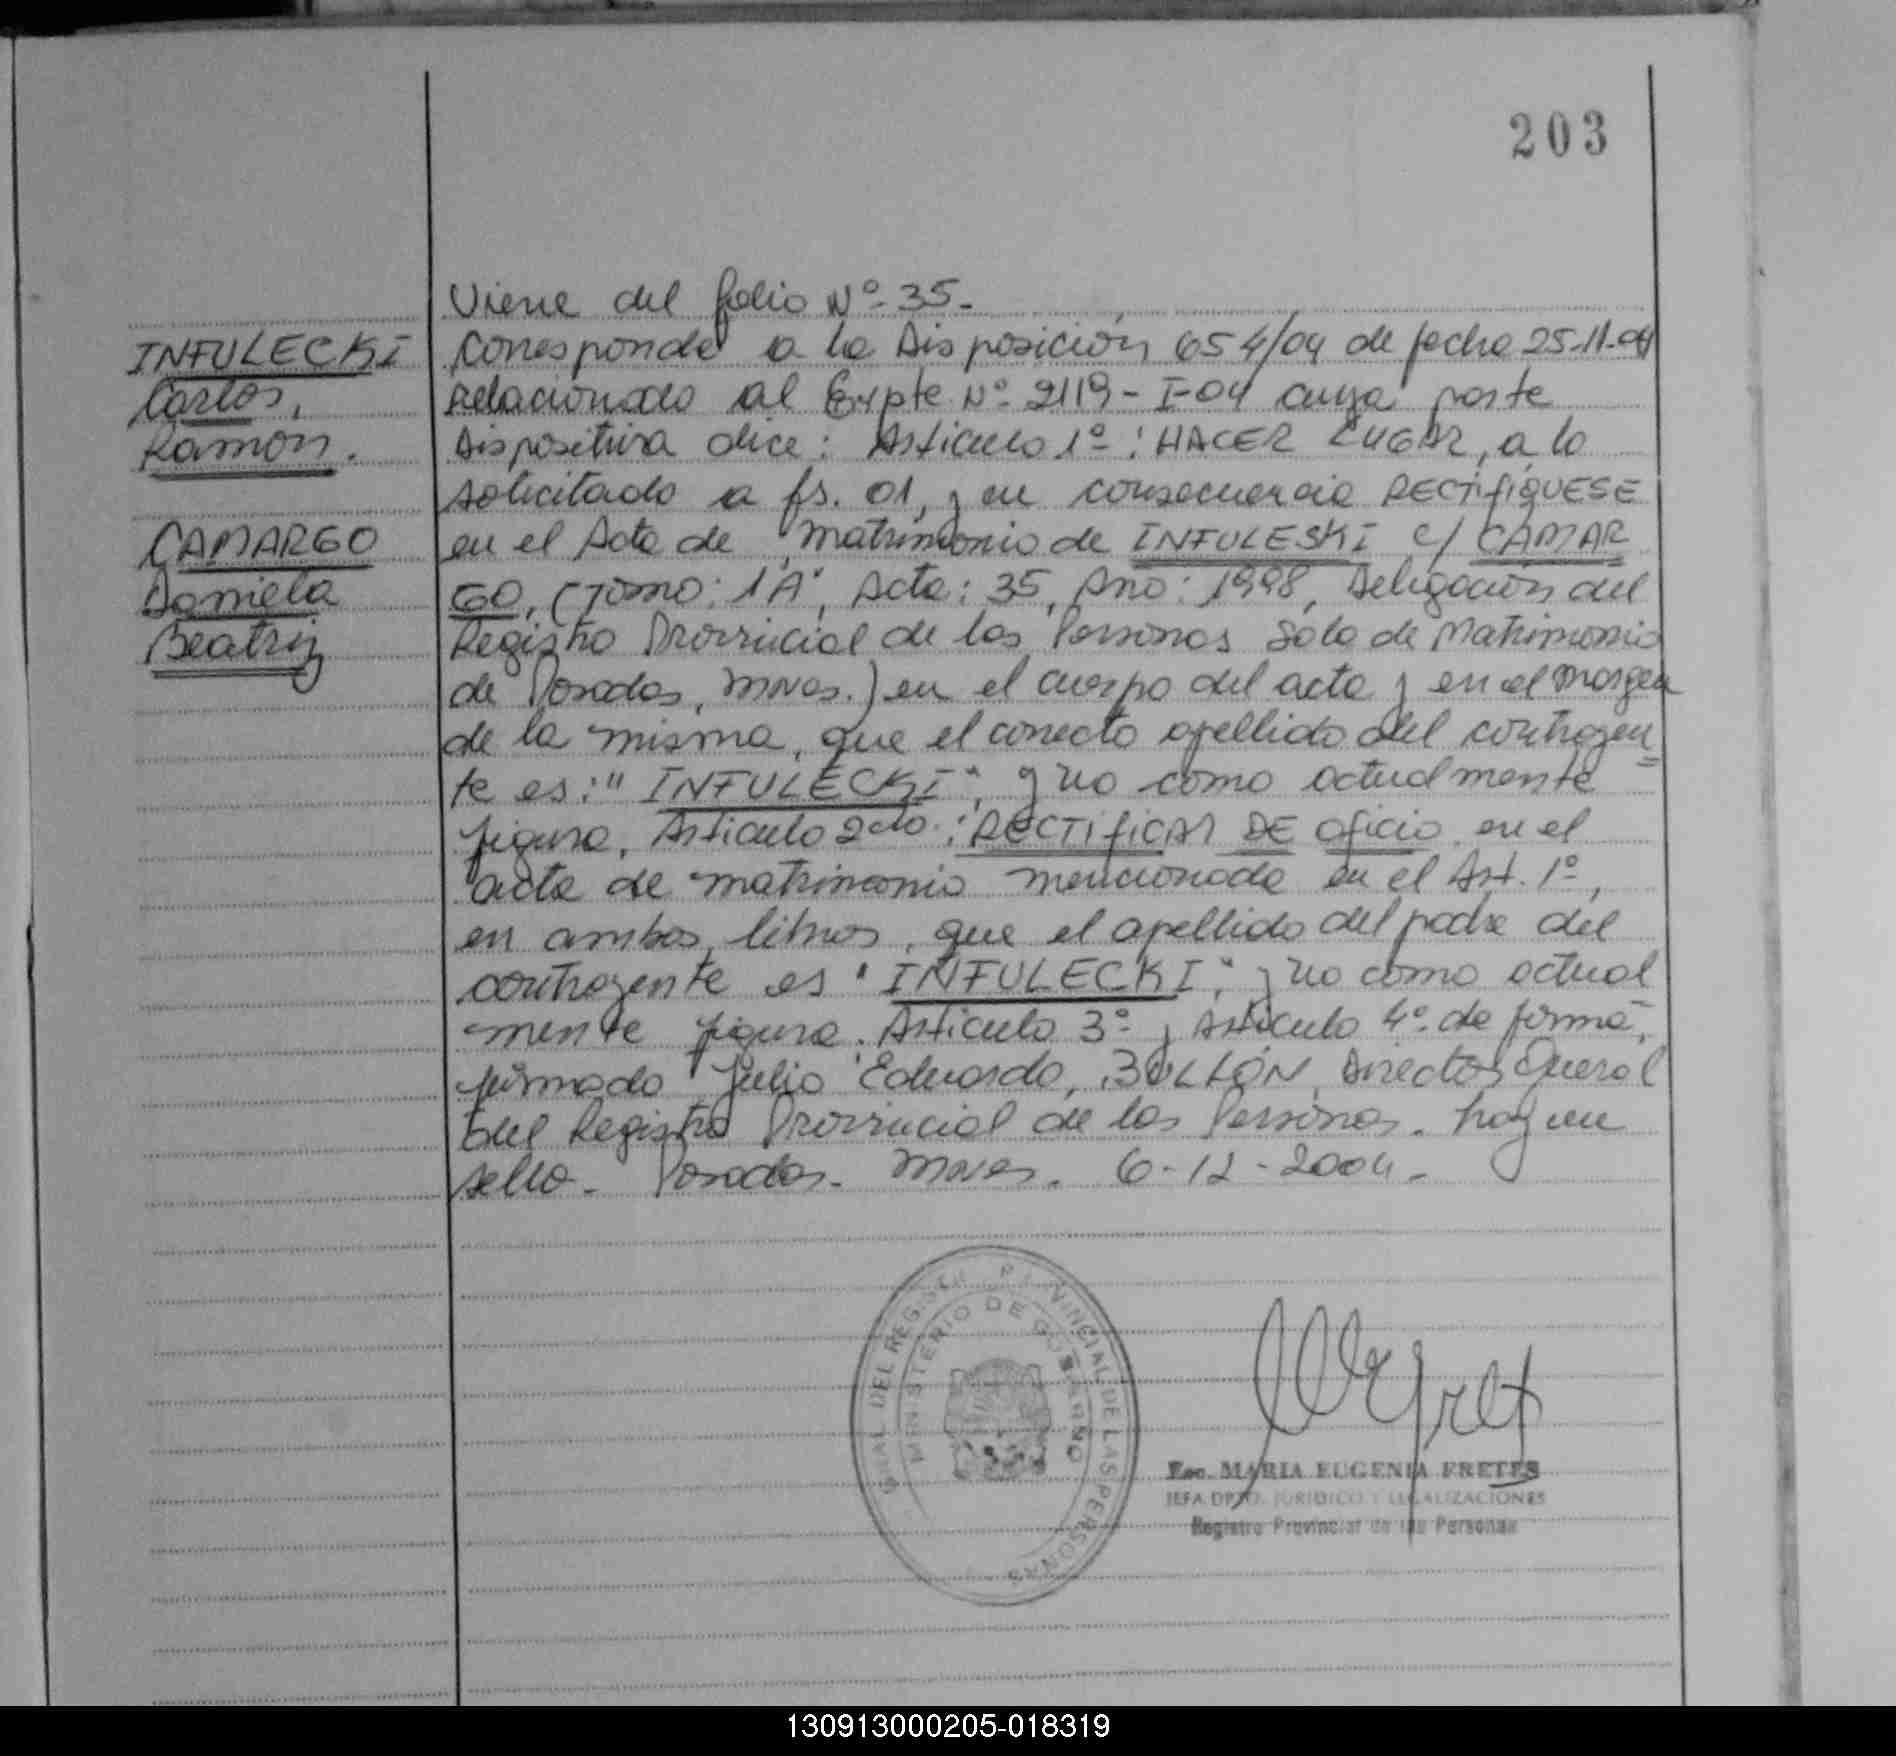 203
Viene del folio Nº 35.
INFULECKI
Carlos,
Ramon.
CAMARGO
Daniela
Beatriz
Corresponde a la Disposición 654/04 de fecha 25-11-04
relacionado al Expte Nº 2119-I-04 cuya parte
Dispositiva dice: Articulo 1º: HACER LUGAR, a lo
solicitado a fs. 01, y en consecuencia RECTIFIQUESE
en el Acta de Matrimonio de INFULESKI c/ CAMAR
GO, (Tomo: 1"A", Acta: 35, Año: 1998, Delegación del
Registro Provincial de las Personas Sala de Matrimonio
de Posadas, Mnes.) en el cuerpo del acta y en el margen
de la misma, que el correcto apellido del contrayen=
te es: "INFULECKI", y no como actualmente
figura. Articulo 2do.: RECTIFICAR DE Oficio en el
acta de matrimonio mencionada en el Art. 1º,
en ambos libros, que el apellido del padre del
contrayente es "INFULECKI", y no como actual
mente figura. Articulo 3º y Articulo 4º de forma,
firmado Julio Eduardo, Director General
del Registro Provincial de las Personas. hay un
sello. Posadas. Mnes. 6-12-2004.
DEL REGISTRO PROVINCIAL DE LAS PERSONAS
MINISTERIO DE GOBIERNO
Esc. MARIA EUGENIA FRETES
JEFA DPTO. JURIDICO Y LEGALIZACIONES
Registro Provincial de las Personas
130913000205-018319